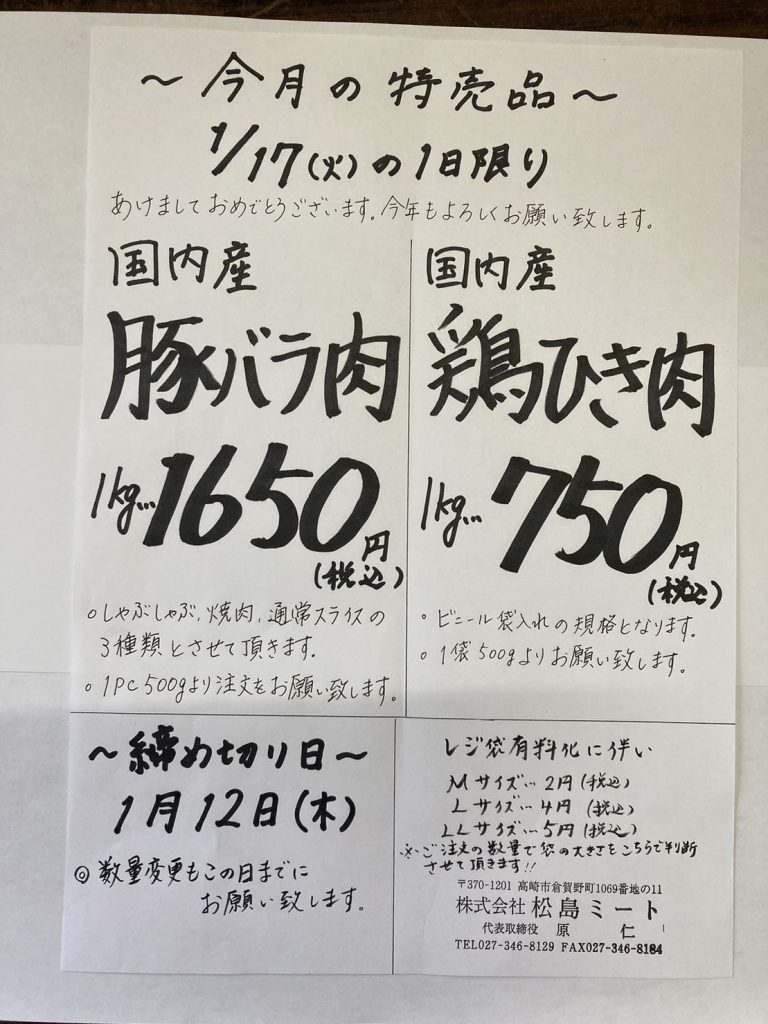 ～今月の特売品～
1/17(火)の1日限り
あけましておめでとうございます。今年もよろしくお願い致します。
国内産
豚バラ肉
1kg…1650円
(税込)
○しゃぶしゃぶ、焼肉、通常スライスの
3種類とさせて頂きます。
○1PC500gより注文をお願い致します。
国内産
鶏ひき肉
1kg…750円
(税込)
○ビニール袋入れの規格となります。
○1袋500gよりお願い致します。
～締め切り日～
1月12日(木)
◎数量変更もこの日までに
お願い致します。
レジ袋有料化に伴い
Mサイズ…2円(税込)
Lサイズ…4円(税込)
LLサイズ…5円(税込)
※ご注文の数量で袋の大きさをこちらで判断
させて頂きます!!
〒370-1201 高崎市倉賀野町1069番地の11
株式会社 松島ミート
代表取締役 原 仁
TEL027-346-8129 FAX027-346-8184